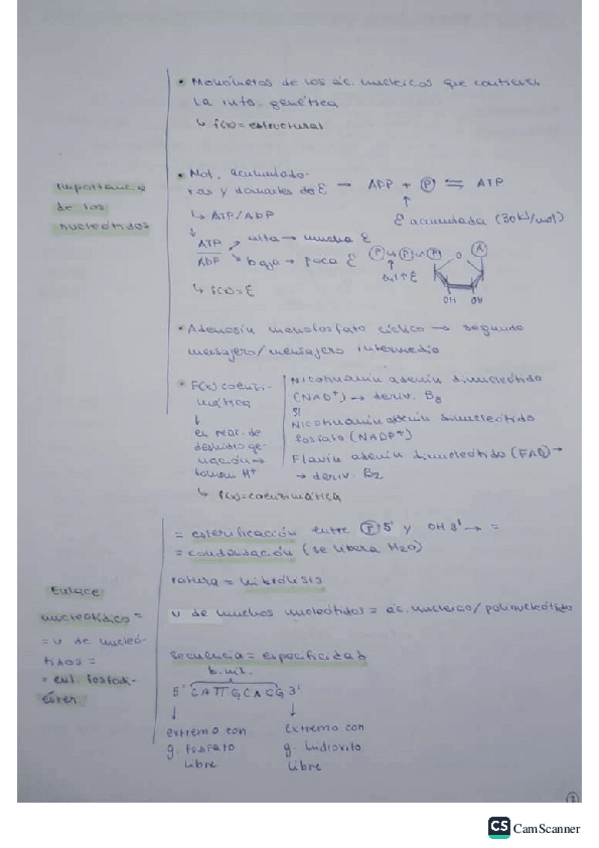 • Monómeros de los ác. nucleicos que contienen
la info. genética
↳ f(x)=estructural
Importancia
de los
nucleótidos
• Mol. acumulado-
ras y donantes de E → ADP + Ⓟ ⇌ ATP
↳ ATP/ADP
E acumulada (30kJ/mol)
ATP
ADP
alta → mucha E
baja → poca E
P P P A
OH OH
↳ f(x)=E
• Adenosín monofosfato cíclico → segundo
mensajero/mensajero intermedio
• F(x) coenzi-
mática
↓
en reac. de
deshidroge-
nación →
toman H+
Nicotinamín adenín dinucleótido
(NAD+) → deriv.
Nicotinamín adenín dinucleótido
fosfato (NADP+)
Flavín adenín dinucleótido (FAD) →
→ deriv. B2
↳ f(x)=coenzimática
Enlace
nucleotídico =
= u de nucleó-
tidos =
= enl. fosfodi-
éster.
= esterificación entre Ⓟ 5' y OH 3' → =
= condensación (se libera H2O)
rotura = hidrólisis
u de muchos nucleótidos = ác. nucleico/polinucleótido
secuencia = especificidad
b. nit.
5' CATTGCACG 3'
↓ ↓
extremo con extremo con
g. fosfato g. hidroxilo
libre libre
CS CamScanner